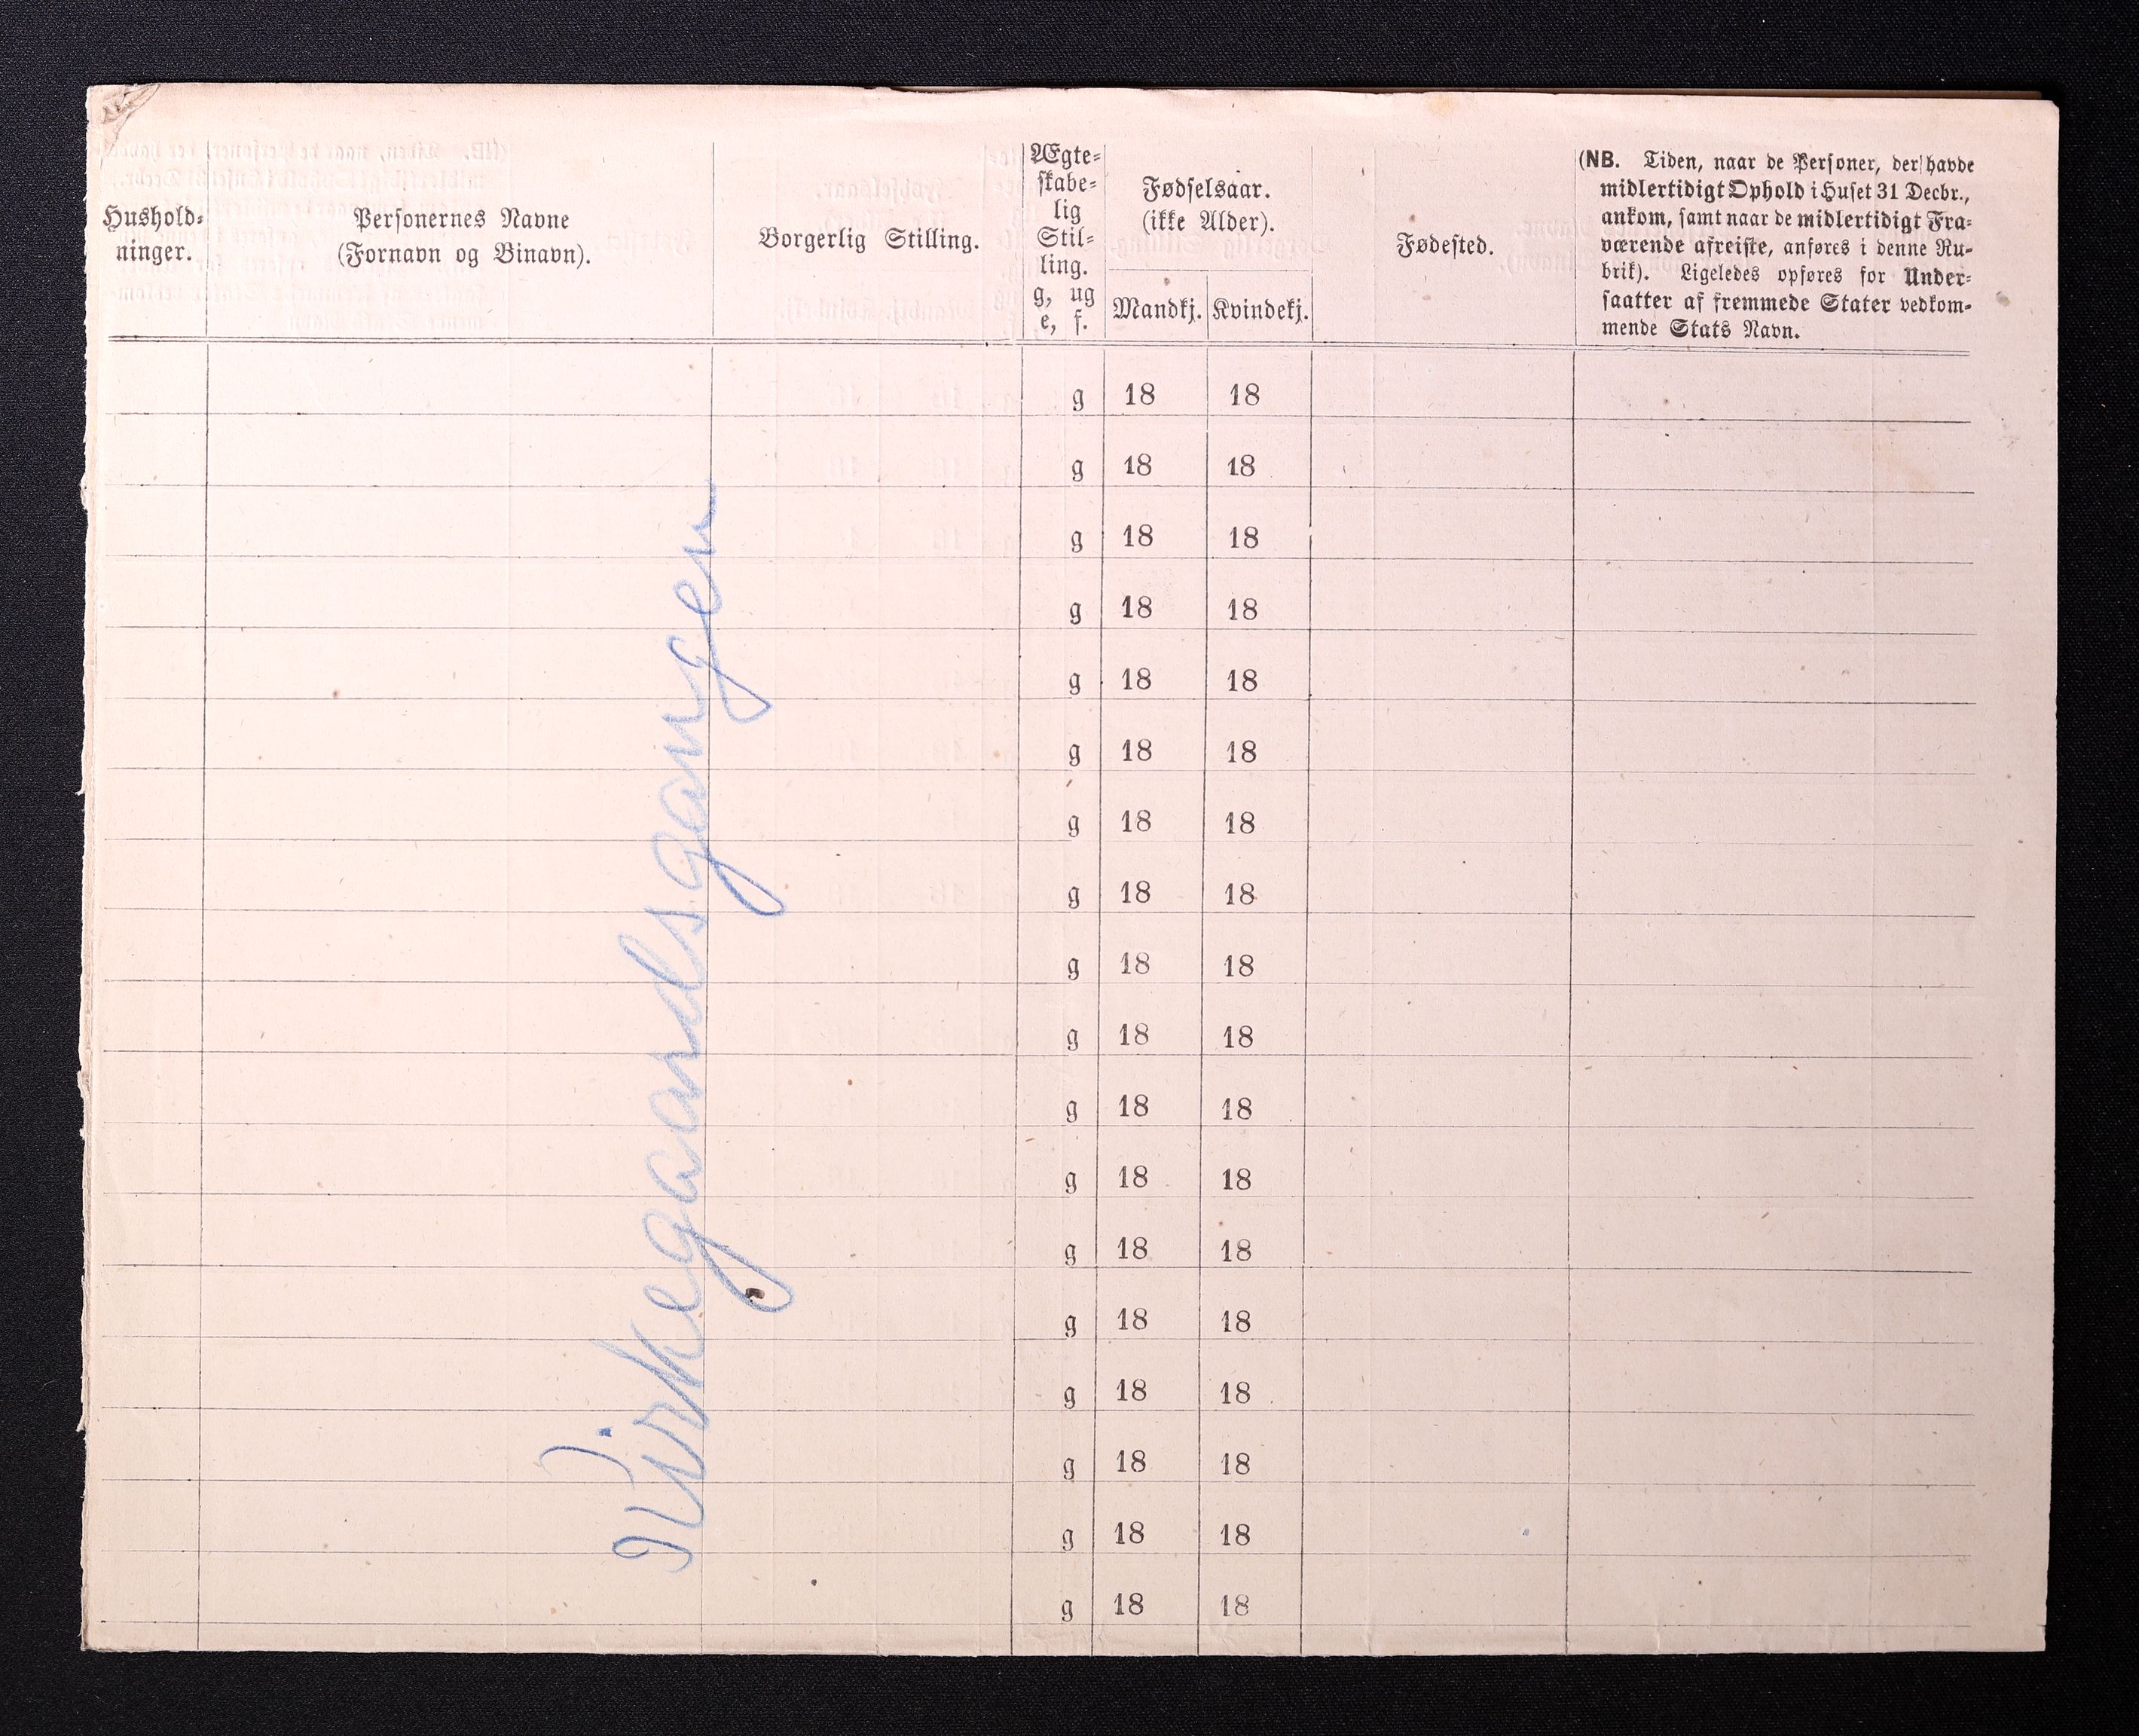 Hushold-
ninger.
Personernes Navne
(Fornavn og Binavn).
Borgerlig Stilling.
Ægte-
skabe-
lig
Stil-
ling.
g, ug
e, f.
Fødselsaar.
(ikke Alder).
Mandkj. Kvindekj.
Fødested.
(NB. Tiden, naar de Personer, der havde
midlertidigt Ophold i Huset 31 Decbr.,
ankom, samt naar de midlertidigt Fra-
værende afreiste, anføres i denne Ru-
brik). Ligeledes opføres for Under-
saatter af fremmede Stater vedkom-
mende Stats Navn.
g 18 18
g 18 18
g 18 18
g 18 18
g 18 18
g 18 18
g 18 18
g 18 18
g 18 18
g 18 18
g 18 18
g 18 18
g 18 18
g 18 18
g 18 18
g 18 18
g 18 18
g 18 18
Kirkegaardsgangen